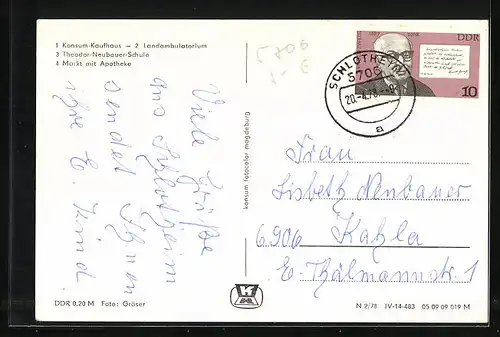 1 Konsum-Kaufhaus — 2 Landambulatorium
3 Theodor-Neubauer-Schule
4 Markt mit Apotheke
5706
Viele Grüße
aus Schlotheim
sendet Ihnen
ihre E. Kind.
konsum foldcolor magdeburg
DDR
10
SCHLOTHEIM
5706
20.-4.78.--9
a
Frau
Lisbeth Neubauer
6906 Kahla
E.-Thälmannstr. 1
DDR 0,20 M Foto: Gröser
K
N 2/78 IV-14-483 05 09 09 019 M